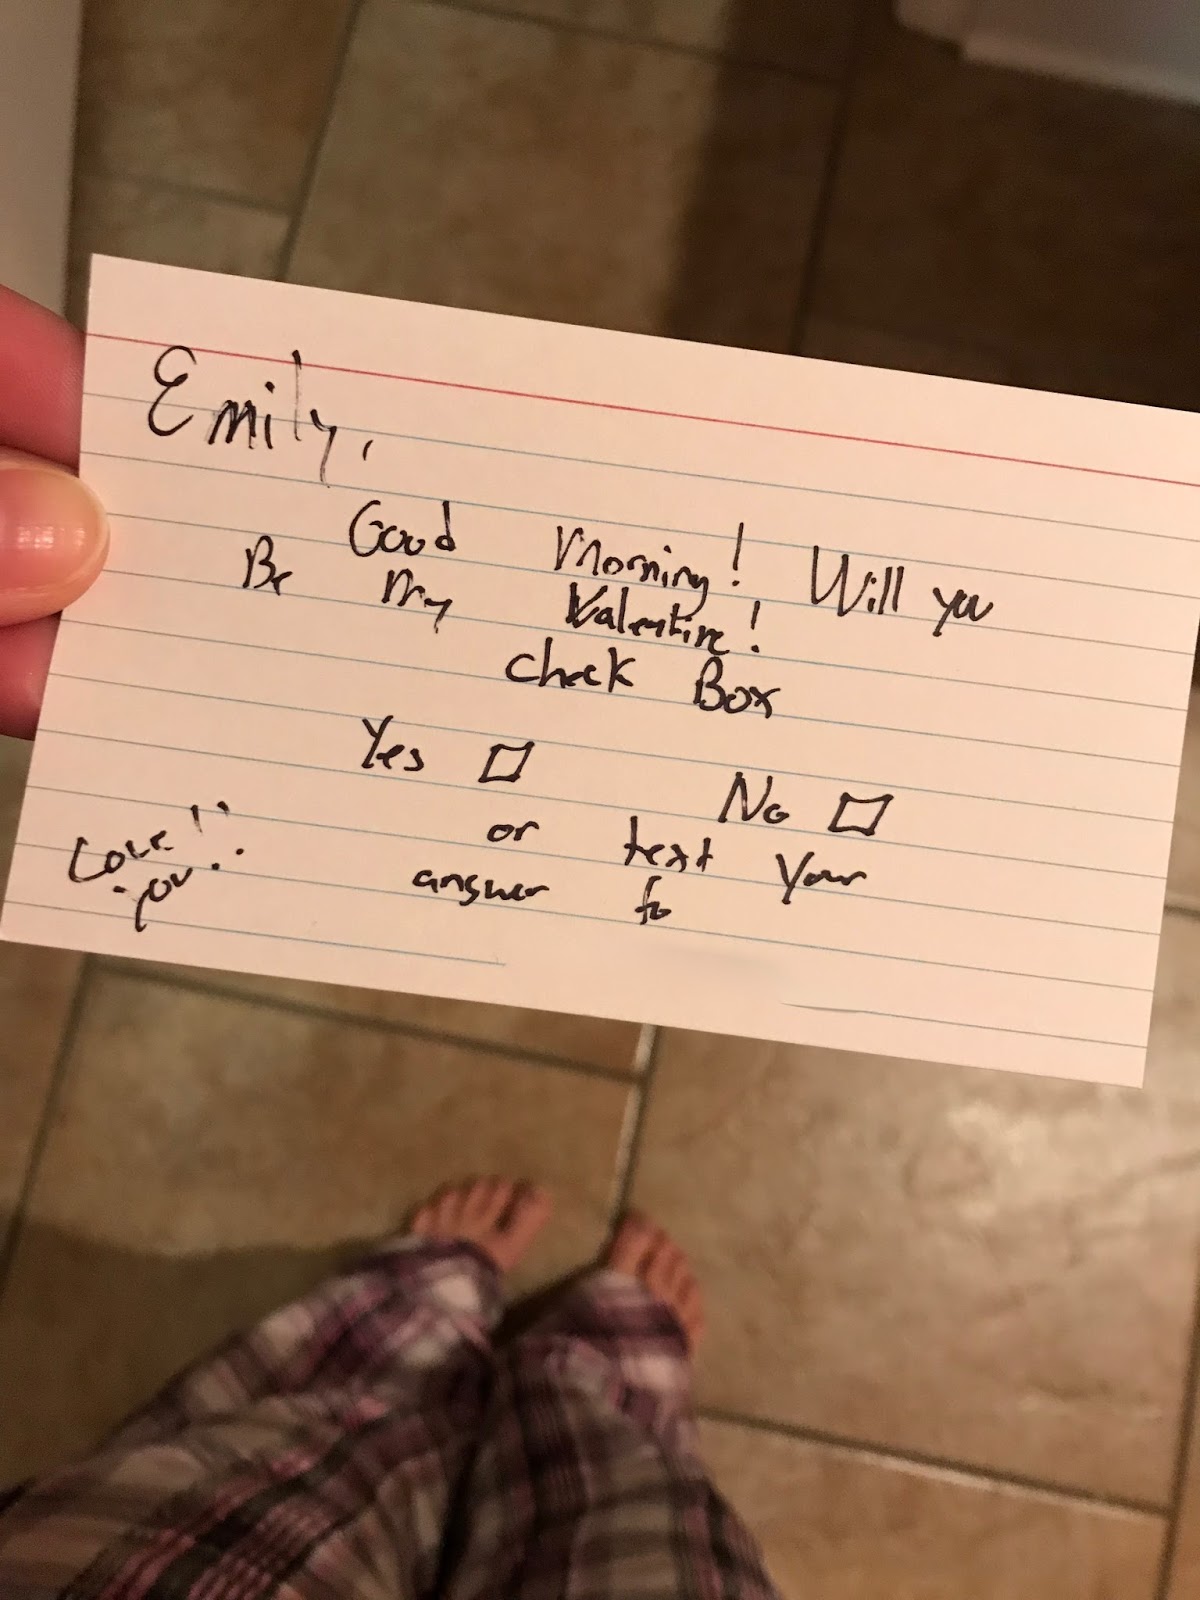 Emily,
Good Morning! Will you
Be My Valentine!
Check Box
Yes □ No □
or text your
answer to
Love!!
you..